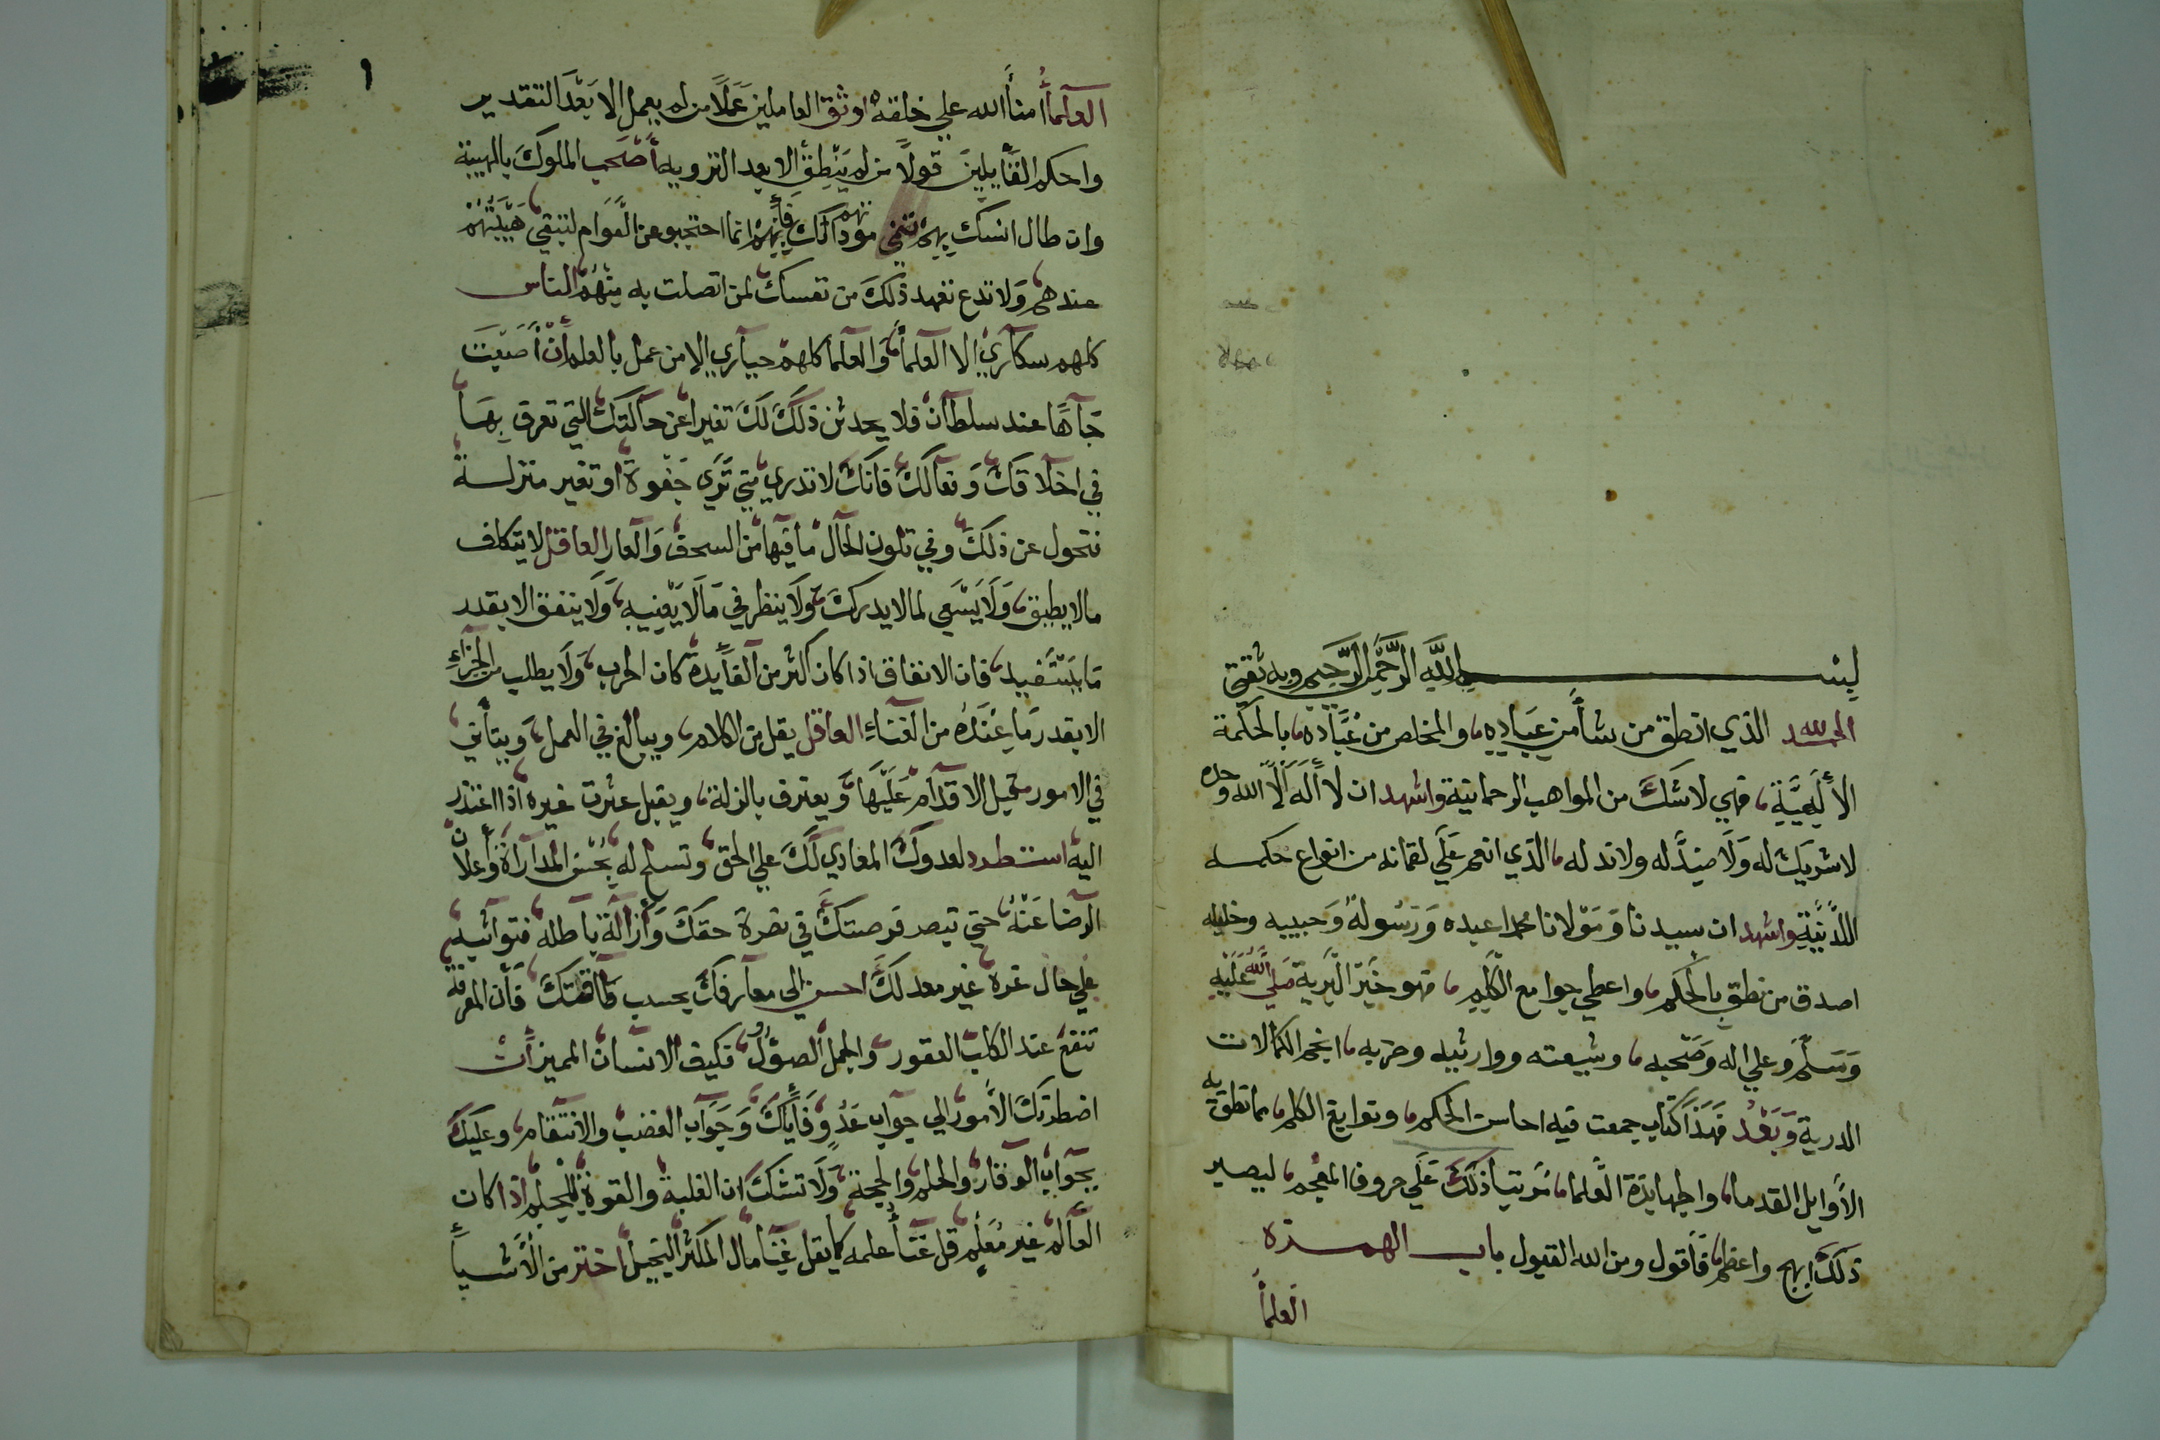 بسم الله الرحمن الرحيم وبه ثقتي
الحمد لله الذي انطق من شأ من عباده، والمخلص من عُبَّاده، بالحكمة
الألهيَّةِ، فهي لاشك من المواهب الرحمانية واشهد ان لا أله ألا الله وحده
لاشريك له ولا ضدَّ له ولا ند له، الذي انعم علي لقمانه من انواع حكمه
اللَّدنيَّةِ واشهد ان سيدنا ومولانا محمدا عبده ورسوله وحبيبه وخليله
اصدق من نطق بالحكم، واعطي جوامع الكلم، فهو خير البرية صلي الله عليه
وسلم وعلي اله وصحبه، وشيعته ووارثيه وحزبه، انجم الكمالات
الدرية وبعد فهذا كتاب جمعت فيه احاسن الحكم، ونوابغ الكلم، مما نطق به
الأوايل القدما، والجهابذة العلما، مُرتبا ذلك علي حروف المعجم، ليصير
ذلك ابهج واعظم، فأقول ومن الله القبول باب الهمزة
العلمأ
١
العلمأ أمنأ الله علي خلقه اوثق العاملين عملا من لم يعمل الا بعد التقدير
واحكم القايلين قولا من لم ينطق الا بعد التزويه أصحب الملوك بالهيبة
وان طال انسك بهم تنمي مودتهم لك فإنهم انما احتجبو عن العوام لتبقي هيبتهم
عندهم، ولا تدع تعهد ذلك من نفسك لمن اتصلت به منهم الناس
كلهم سكاري الا العلمأ، والعلما كلهم حياري الا من عمل بالعلم أن أصبت
جاها عند سلطان فلا يحدثن ذلك لك تغيرا عن حالتك التي تعرف بها
في اخلاقك وفعالك فانك لا تدري متي تري جفوة او تغير منزلة
فتحول عن ذلك وفي تلون الحال ما فيها من السخف والعار العاقل لا يتكلف
مالا يطيق، ولا يسعي لما لا يدرك، ولا ينظر في ما لا يعنيه، ولا ينفق الا بقدر
ما يستفيد، فان الانفاق اذا كان اكثر من الفايدة كان الحرب، ولا يطلب من الجزاء
الا بقدر ما عنده من الغناء العاقل يقل من الكلام، ويبالغ في العمل، ويتأني
في الامور قبل الاقدام عليها، ويعترف بالزلة، ويقبل عثرت غيره اذا اعتذر
اليه استطرد لعدوك المعادي لك علي الحق، وتسلح له بحسن المداراة وأعلان
الرضا عنه حتي تبصر فرصتك في نصرة حقك وأزالة باطله، فتواثبه
علي حال غرة غير معد لك احسن الي معارفك بحسب طاقتك، فأن المعرفة
تنفع عند الكلب العقور، والجمل الصؤل، فكيف الانسان المميز أن
اضطرتك الأمور الي جواب عدو فأياك وجواب الغضب والأنتقام، وعليك
بجواب الوقار، والحلم والحجة، ولا تشك ان الغلبة والقوة للحليم اذا كان
العالم غير معلم قل غنأ علمه كما يقل غنا مال المكثر البخيل اختر من الأشيأ